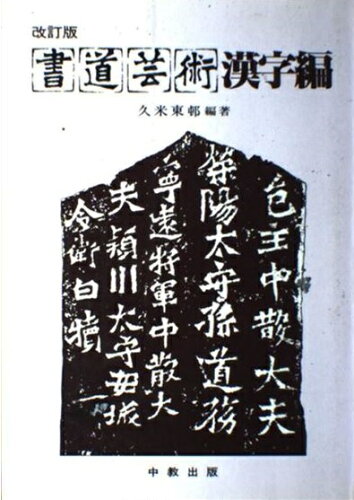 改訂版
書道芸術漢字編
久米東邨編著
邑主中散大夫
滎陽太守孫道務
寧遠將軍中散大
夫潁川太守安城
令衛白犢
中教出版